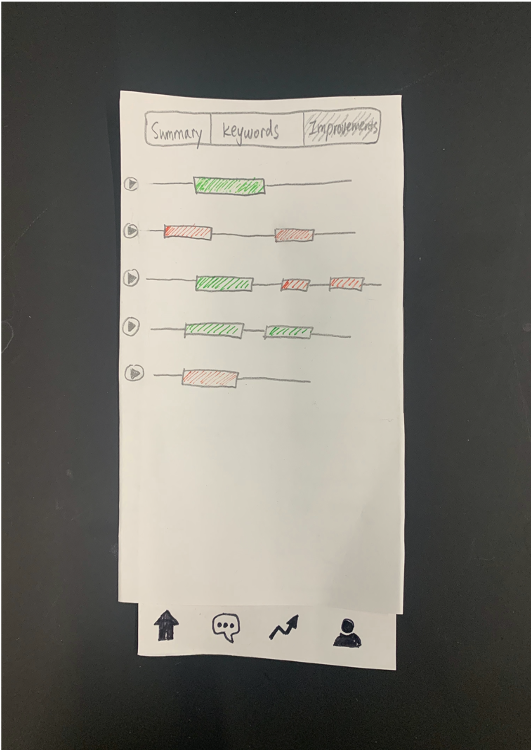 Summary keywords Improvements